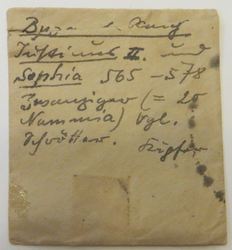 Byz. Kung
Justinus II. und
Sophia 565–578
Zwanziger (= 20
Nummia) Vgl.
Kupfer